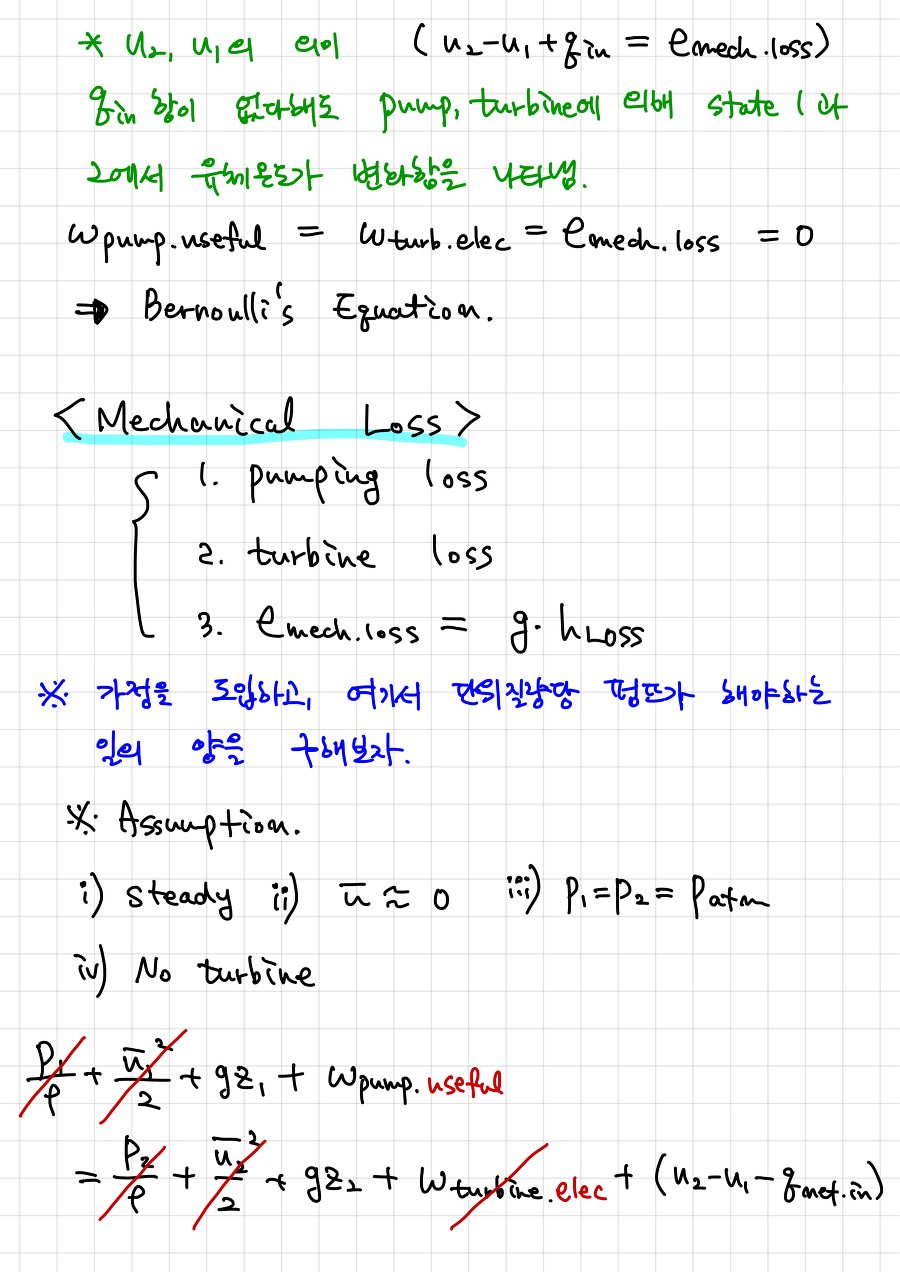 * u₂, u₁의 의미 (u₂-u₁+q_in = e_mech.loss)
q_in 항이 없다해도 pump, turbine에 의해 state 1과
2에서 유체온도가 변화함을 나타냄.
w_pump.useful = w_turb.elec = e_mech.loss = 0
⇒ Bernoulli's Equation.
<Mechanical Loss>
1. pumping loss
2. turbine loss
3. e_mech.loss = g·h_Loss
※ 가정을 도입하고, 여기서 단위질량당 펌프가 해야하는
일의 양을 구해보자.
※ Assumption.
i) steady ii) ū ≈ 0 iii) P₁=P₂=P_atm
iv) No turbine
P₁/ρ + ū₁²/2 + gz₁ + w_pump.useful
= P₂/ρ + ū₂²/2 + gz₂ + w_turbine.elec + (u₂-u₁-q_net.in)